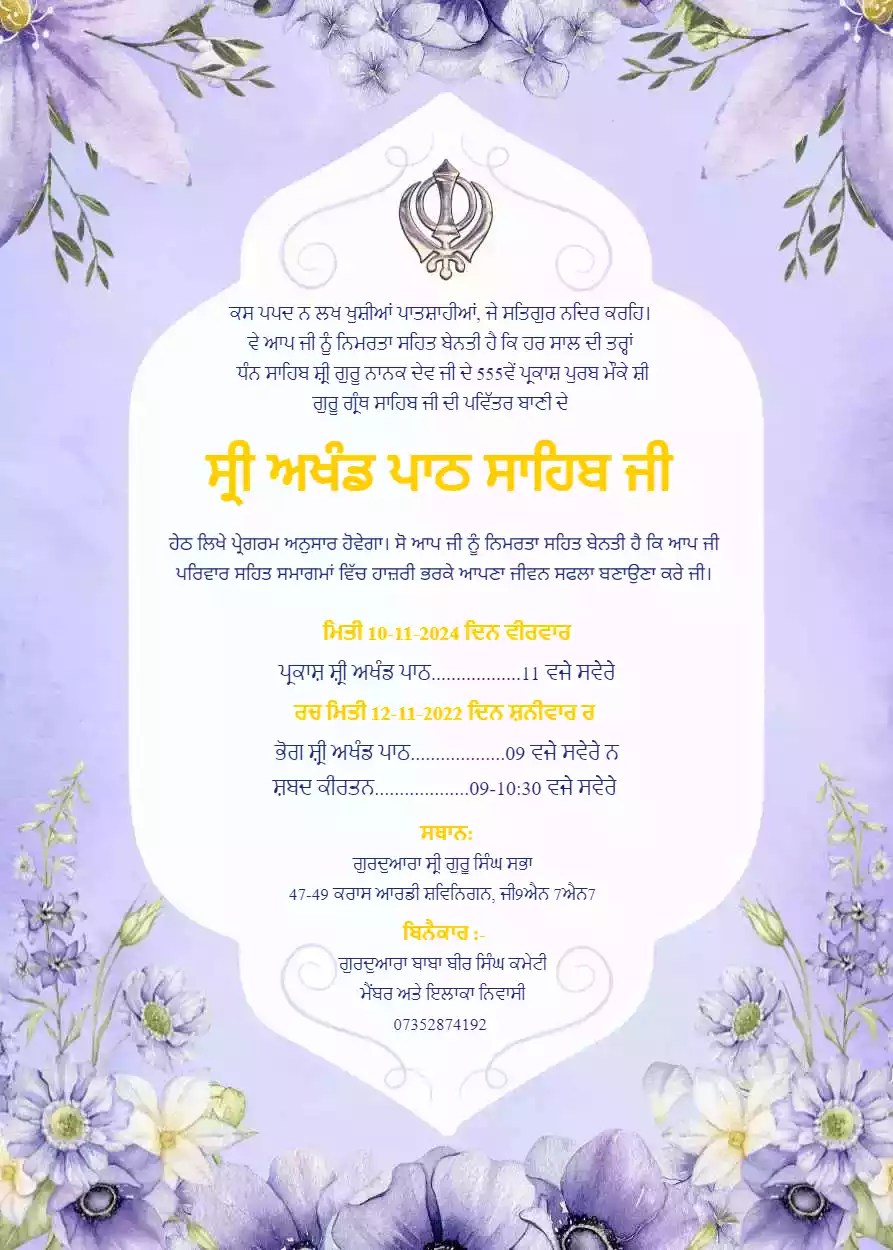 ਕਸ ਪਪਦ ਨ ਲਖ ਖੁਸ਼ੀਆਂ ਪਾਤਸ਼ਾਹੀਆਂ, ਜੇ ਸਤਿਗੁਰ ਨਦਿਰ ਕਰਹਿ।
ਵੇ ਆਪ ਜੀ ਨੂੰ ਨਿਮਰਤਾ ਸਹਿਤ ਬੇਨਤੀ ਹੈ ਕਿ ਹਰ ਸਾਲ ਦੀ ਤਰ੍ਹਾਂ
ਧੰਨ ਸਾਹਿਬ ਸ਼੍ਰੀ ਗੁਰੂ ਨਾਨਕ ਦੇਵ ਜੀ ਦੇ 555ਵੇਂ ਪ੍ਰਕਾਸ਼ ਪੁਰਬ ਮੌਕੇ ਸ਼ੀ
ਗੁਰੂ ਗ੍ਰੰਥ ਸਾਹਿਬ ਜੀ ਦੀ ਪਵਿੱਤਰ ਬਾਣੀ ਦੇ
ਸ੍ਰੀ ਅਖੰਡ ਪਾਠ ਸਾਹਿਬ ਜੀ
ਹੇਠ ਲਿਖੇ ਪ੍ਰੋਗਰਮ ਅਨੁਸਾਰ ਹੋਵੇਗਾ। ਸੋ ਆਪ ਜੀ ਨੂੰ ਨਿਮਰਤਾ ਸਹਿਤ ਬੇਨਤੀ ਹੈ ਕਿ ਆਪ ਜੀ
ਪਰਿਵਾਰ ਸਹਿਤ ਸਮਾਗਮਾਂ ਵਿੱਚ ਹਾਜ਼ਰੀ ਭਰਕੇ ਆਪਣਾ ਜੀਵਨ ਸਫਲਾ ਬਣਾਉਣਾ ਕਰੇ ਜੀ।
ਮਿਤੀ 10-11-2024 ਦਿਨ ਵੀਰਵਾਰ
ਪ੍ਰਕਾਸ਼ ਸ਼੍ਰੀ ਅਖੰਡ ਪਾਠ..................11 ਵਜੇ ਸਵੇਰੇ
ਰਚ ਮਿਤੀ 12-11-2022 ਦਿਨ ਸ਼ਨੀਵਾਰ ਰ
ਭੋਗ ਸ਼੍ਰੀ ਅਖੰਡ ਪਾਠ...................09 ਵਜੇ ਸਵੇਰੇ ਨ
ਸ਼ਬਦ ਕੀਰਤਨ...................09-10:30 ਵਜੇ ਸਵੇਰੇ
ਸਥਾਨ:
ਗੁਰਦੁਆਰਾ ਸ੍ਰੀ ਗੁਰੂ ਸਿੰਘ ਸਭਾ
47-49 ਕਰਾਸ ਆਰਡੀ ਸ਼ਵਿਨਿਗਨ, ਜੀ9ਐਨ 7ਐਨ7
ਬਿਨੈਕਾਰ :-
ਗੁਰਦੁਆਰਾ ਬਾਬਾ ਬੀਰ ਸਿੰਘ ਕਮੇਟੀ
ਮੈਂਬਰ ਅਤੇ ਇਲਾਕਾ ਨਿਵਾਸੀ
07352874192